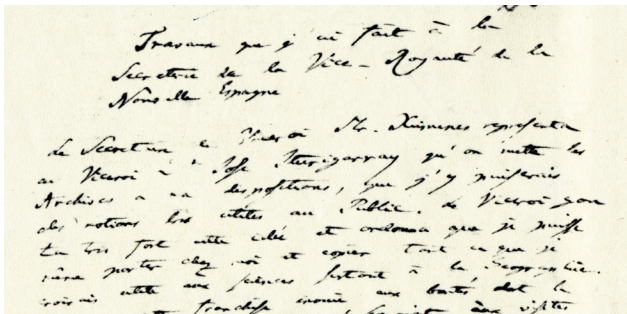 Travaux que j'ai fait à la
Secretrie de la Vice-Royauté de la
Nouvelle Espagne
Le Secretaire du Viceroi Mr. Ximenes representa
au Viceroi Jose Iturrigarray qu'on mette les
Archives a ma dispositions, que j'y puiserais
des notions bien utiles au Public. Le Viceroi gou
ta tres fort cette idée et ordonna que je puisse
même porter chez moi et copier tout ce que je
croirais utile aux sciences surtout à la Geographie.
franchise inouie aux bontés, dont la
aux visites